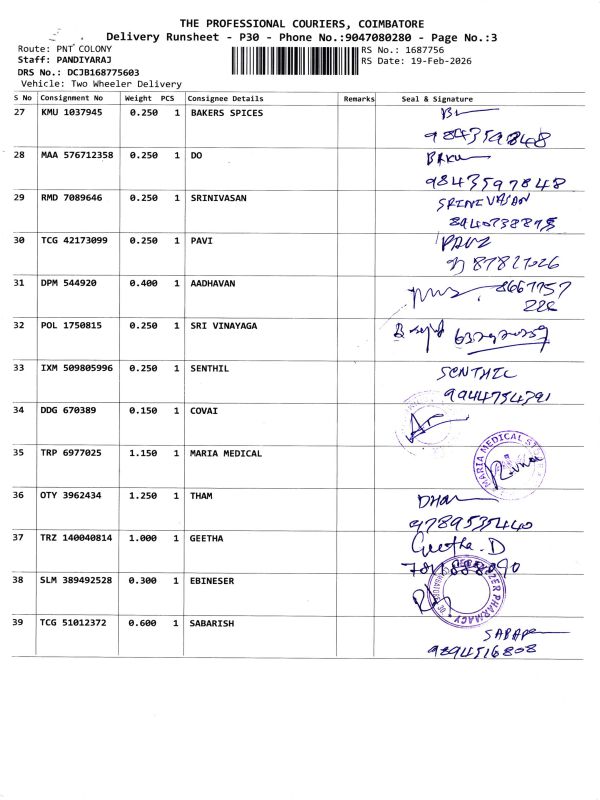 THE PROFESSIONAL COURIERS, COIMBATORE
Delivery Runsheet - P30 - Phone No.:9047080280 - Page No.:3
Route: PNT COLONY
RS No.: 1687756
Staff: PANDIYARAJ
RS Date: 19-Feb-2026
DRS No.: DCJB168775603
Vehicle: Two Wheeler Delivery
S No Consignment No Weight PCS Consignee Details Remarks Seal & Signature
27 KMU 1037945 0.250 1 BAKERS SPICES
9843597848
28 MAA 576712358 0.250 1 DO
9843597848
29 RMD 7089646 0.250 1 SRINIVASAN SRINIVASAN
30 TCG 42173099 0.250 1 PAVI PAVI
31 DPM 544920 0.400 1 AADHAVAN
32 POL 1750815 0.250 1 SRI VINAYAGA
33 IXM 509805996 0.250 1 SENTHIL SENTHIL
9944754791
34 DDG 670389 0.150 1 COVAI
35 TRP 6977025 1.150 1 MARIA MEDICAL MARIA MEDICAL
36 OTY 3962434 1.250 1 THAM
9789535440
37 TRZ 140040814 1.000 1 GEETHA Geetha.D
38 SLM 389492528 0.300 1 EBINESER PHARMACY
39 TCG 51012372 0.600 1 SABARISH
9894516808